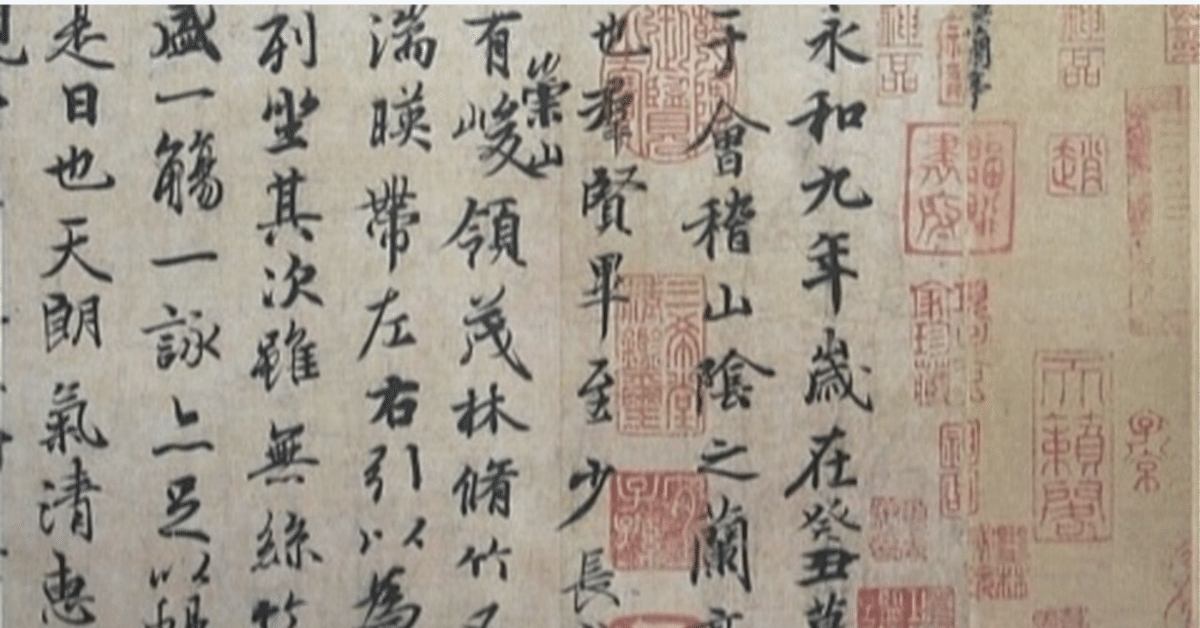 子京
神品
趙
天籟閣
永和九年歲在癸丑
于會稽山陰之蘭
也羣賢畢至少長
崇山
有峻領茂林脩竹又
湍暎帶左右引以為
列坐其次雖無絲竹
盛一觴一詠亦足以暢
是日也天朗氣清惠